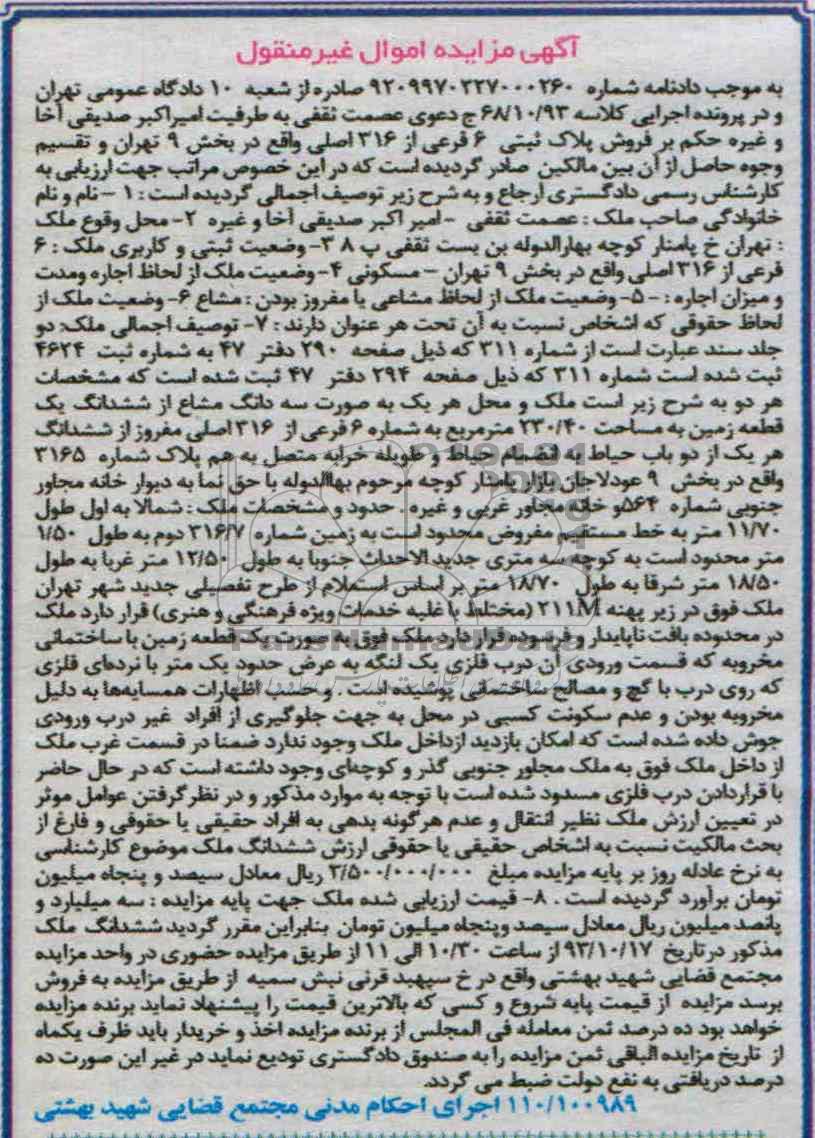 آگهی مزایده اموال غیرمنقول
به موجب دادنامه شماره ۹۲۰۹۹۷۰۲۲۷۰۰۰۲۶۰ صادره از شعبه ۱۰ دادگاه عمومی تهران
و در پرونده اجرایی کلاسه ۶۸/۱۰/۹۳ ج دعوی عصمت ثقفی به طرفیت امیراکبر صدیقی آخا
و غیره حکم بر فروش پلاک ثبتی ۶ فرعی از ۳۱۶ اصلی واقع در بخش ۹ تهران و تقسیم
وجوه حاصل از آن بین مالکین صادر گردیده است که در این خصوص مراتب جهت ارزیابی به
کارشناس رسمی دادگستری ارجاع و به شرح زیر توصیف اجمالی گردیده است : ۱ - نام و نام
خانوادگی صاحب ملک : عصمت ثقفی - امیر اکبر صدیقی آخا و غیره ۲- محل وقوع ملک
: تهران خ پامنار کوچه بهارالدوله بن بست ثقفی پ ۸ ۳- وضعیت ثبتی و کاربری ملک : ۶
فرعی از ۳۱۶ اصلی واقع در بخش ۹ تهران - مسکونی ۴- وضعیت ملک از لحاظ اجاره ومدت
و میزان اجاره : - ۵- وضعیت ملک از لحاظ مشاعی یا مفروز بودن : مشاع ۶- وضعیت ملک از
لحاظ حقوقی که اشخاص نسبت به آن تحت هر عنوان دارند : ۷- توصیف اجمالی ملک: دو
جلد سند عبارت است از شماره ۳۱۱ که ذیل صفحه ۲۹۰ دفتر ۴۷ به شماره ثبت ۴۶۲۴
ثبت شده است شماره ۳۱۱ که ذیل صفحه ۲۹۴ دفتر ۴۷ ثبت شده است که مشخصات
هر دو به شرح زیر است ملک و محل هر یک به صورت سه دانگ مشاع از ششدانگ یک
قطعه زمین به مساحت ۲۳۰/۴۰ مترمربع به شماره ۶ فرعی از ۳۱۶ اصلی مفروز از ششدانگ
هر یک از دو باب حیاط به انضمام حیاط و طویله خرابه متصل به هم پلاک شماره ۳۱۶۵
واقع در بخش ۹ عودلاجان بازار پامنار کوچه مرحوم بهاالدوله با حق نما به دیوار خانه مجاور
جنوبی شماره ۵۶۴و خانه مجاور غربی و غیره . حدود و مشخصات ملک : شمالا به اول طول
۱۱/۷۰ متر به خط مستقیم مفروض محدود است به زمین شماره ۳۱۶/۷ دوم به طول ۱/۵۰
متر محدود است به کوچه سه متری جدید الاحداث جنوبا به طول ۱۲/۵۰ متر غربا به طول
۱۸/۵۰ متر شرقا به طول ۱۸/۷۰ متر بر اساس استعلام از طرح تفصیلی جدید شهر تهران
ملک فوق در زیر پهنه ۲۱۱M (مختلط با غلبه خدمات ویژه فرهنگی و هنری) قرار دارد ملک
در محدوده بافت ناپایدار و فرسوده قرار دارد ملک فوق به صورت یک قطعه زمین با ساختمانی
مخروبه که قسمت ورودی آن درب فلزی یک لنگه به عرض حدود یک متر با نرده‌ای فلزی
که روی درب با گچ و مصالح ساختمانی پوشیده است . و حسب اظهارات همسایه‌ها به دلیل
مخروبه بودن و عدم سکونت کسبی در محل به جهت جلوگیری از افراد غیر درب ورودی
جوش داده شده است که امکان بازدید ازداخل ملک وجود ندارد ضمنا در قسمت غرب ملک
از داخل ملک فوق به ملک مجاور جنوبی گذر و کوچه‌ای وجود داشته است که در حال حاضر
با قراردادن درب فلزی مسدود شده است با توجه به موارد مذکور و در نظر گرفتن عوامل موثر
در تعیین ارزش ملک نظیر انتقال و عدم هرگونه بدهی به افراد حقیقی یا حقوقی و فارغ از
بحث مالکیت نسبت به اشخاص حقیقی یا حقوقی ارزش ششدانگ ملک موضوع کارشناسی
به نرخ عادله روز بر پایه مزایده مبلغ ۳/۵۰۰/۰۰۰/۰۰۰ ریال معادل سیصد و پنجاه میلیون
تومان برآورد گردیده است . ۸- قیمت ارزیابی شده ملک جهت پایه مزایده : سه میلیارد و
پانصد میلیون ریال معادل سیصد وپنجاه میلیون تومان بنابراین مقرر گردید ششدانگ ملک
مذکور درتاریخ ۹۳/۱۰/۱۷ از ساعت ۱۰/۳۰ الی ۱۱ از طریق مزایده حضوری در واحد مزایده
مجتمع قضایی شهید بهشتی واقع در خ سپهبد قرنی نبش سمیه از طریق مزایده به فروش
برسد مزایده از قیمت پایه شروع و کسی که بالاترین قیمت را پیشنهاد نماید برنده مزایده
خواهد بود ده درصد ثمن معامله فی المجلس از برنده مزایده اخذ و خریدار باید ظرف یکماه
از تاریخ مزایده الباقی ثمن مزایده را به صندوق دادگستری تودیع نماید در غیر این صورت ده
درصد دریافتی به نفع دولت ضبط می گردد.
۱۱۰/۱۰۰۹۸۹ اجرای احکام مدنی مجتمع قضایی شهید بهشتی
ParsNamadData